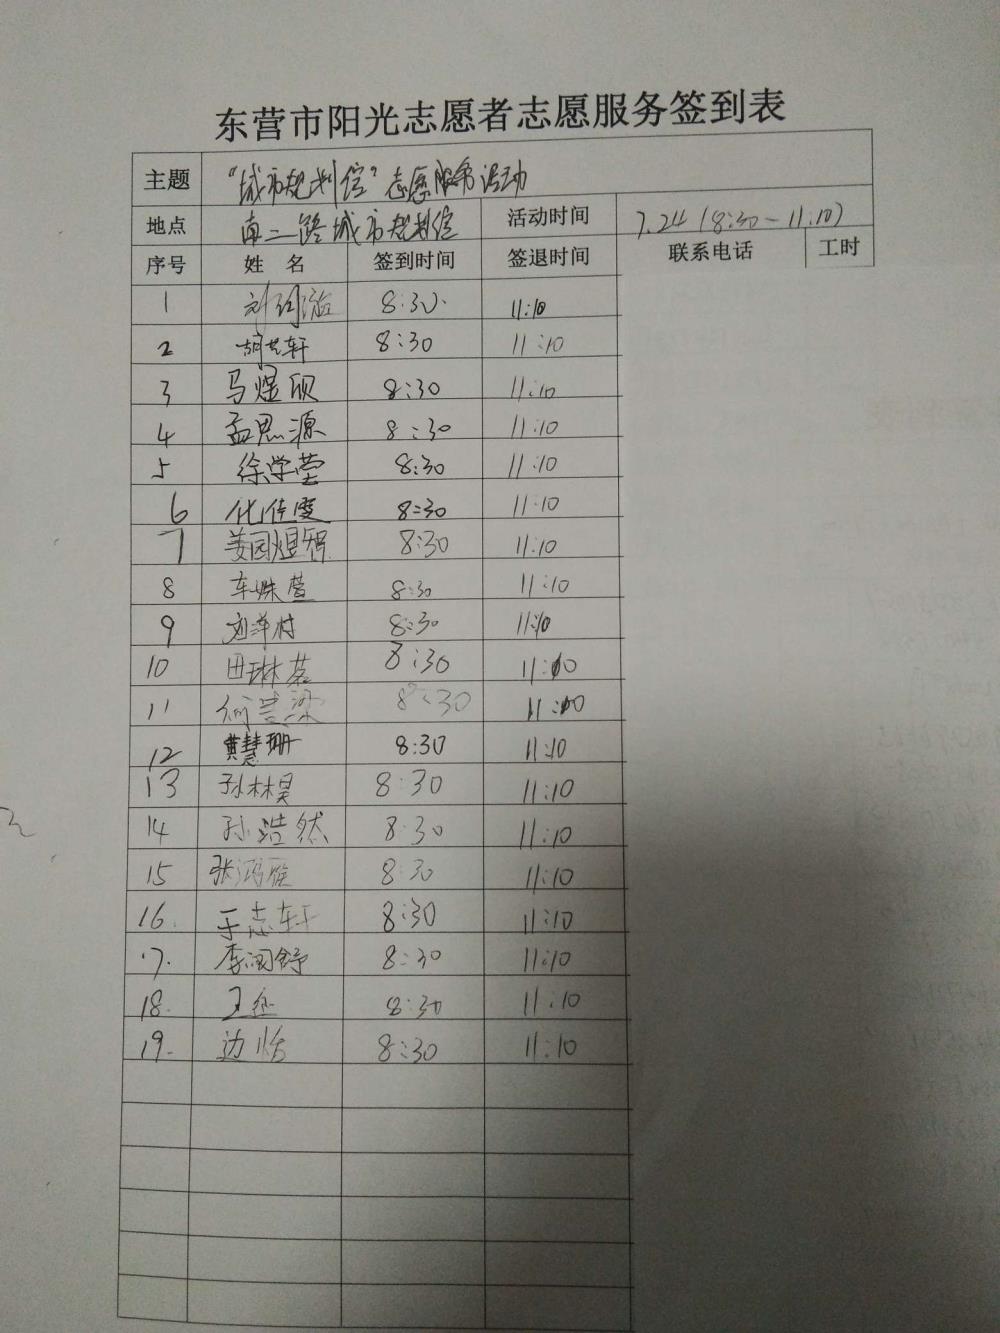 东营市阳光志愿者志愿服务签到表
主题 “城市规划馆”志愿服务活动
地点 南二路城市规划馆 活动时间 7.24 (8:30-11:10)
序号 姓 名 签到时间 签退时间 联系电话 工时
1 刘 8:30 11:10
2 胡艺轩 8:30 11:10
3 马煜欣 8:30 11:10
4 孟思源 8:30 11:10
5 徐学莹 8:30 11:10
6 化佳雯 8:30 11:10
7 姜园煜 8:30 11:10
8 车姝萱 8:30 11:10
9 刘萍村 8:30 11:10
10 田琳茗 8:30 11:10
11 何 8:30 11:10
12 黄慧珊 8:30 11:10
13 孙林昊 8:30 11:10
14 孙浩然 8:30 11:10
15 张 8:30 11:10
16. 于志轩 8:30 11:10
17. 李润舒 8:30 11:10
18. 王 8:30 11:10
19. 边怡 8:30 11:10